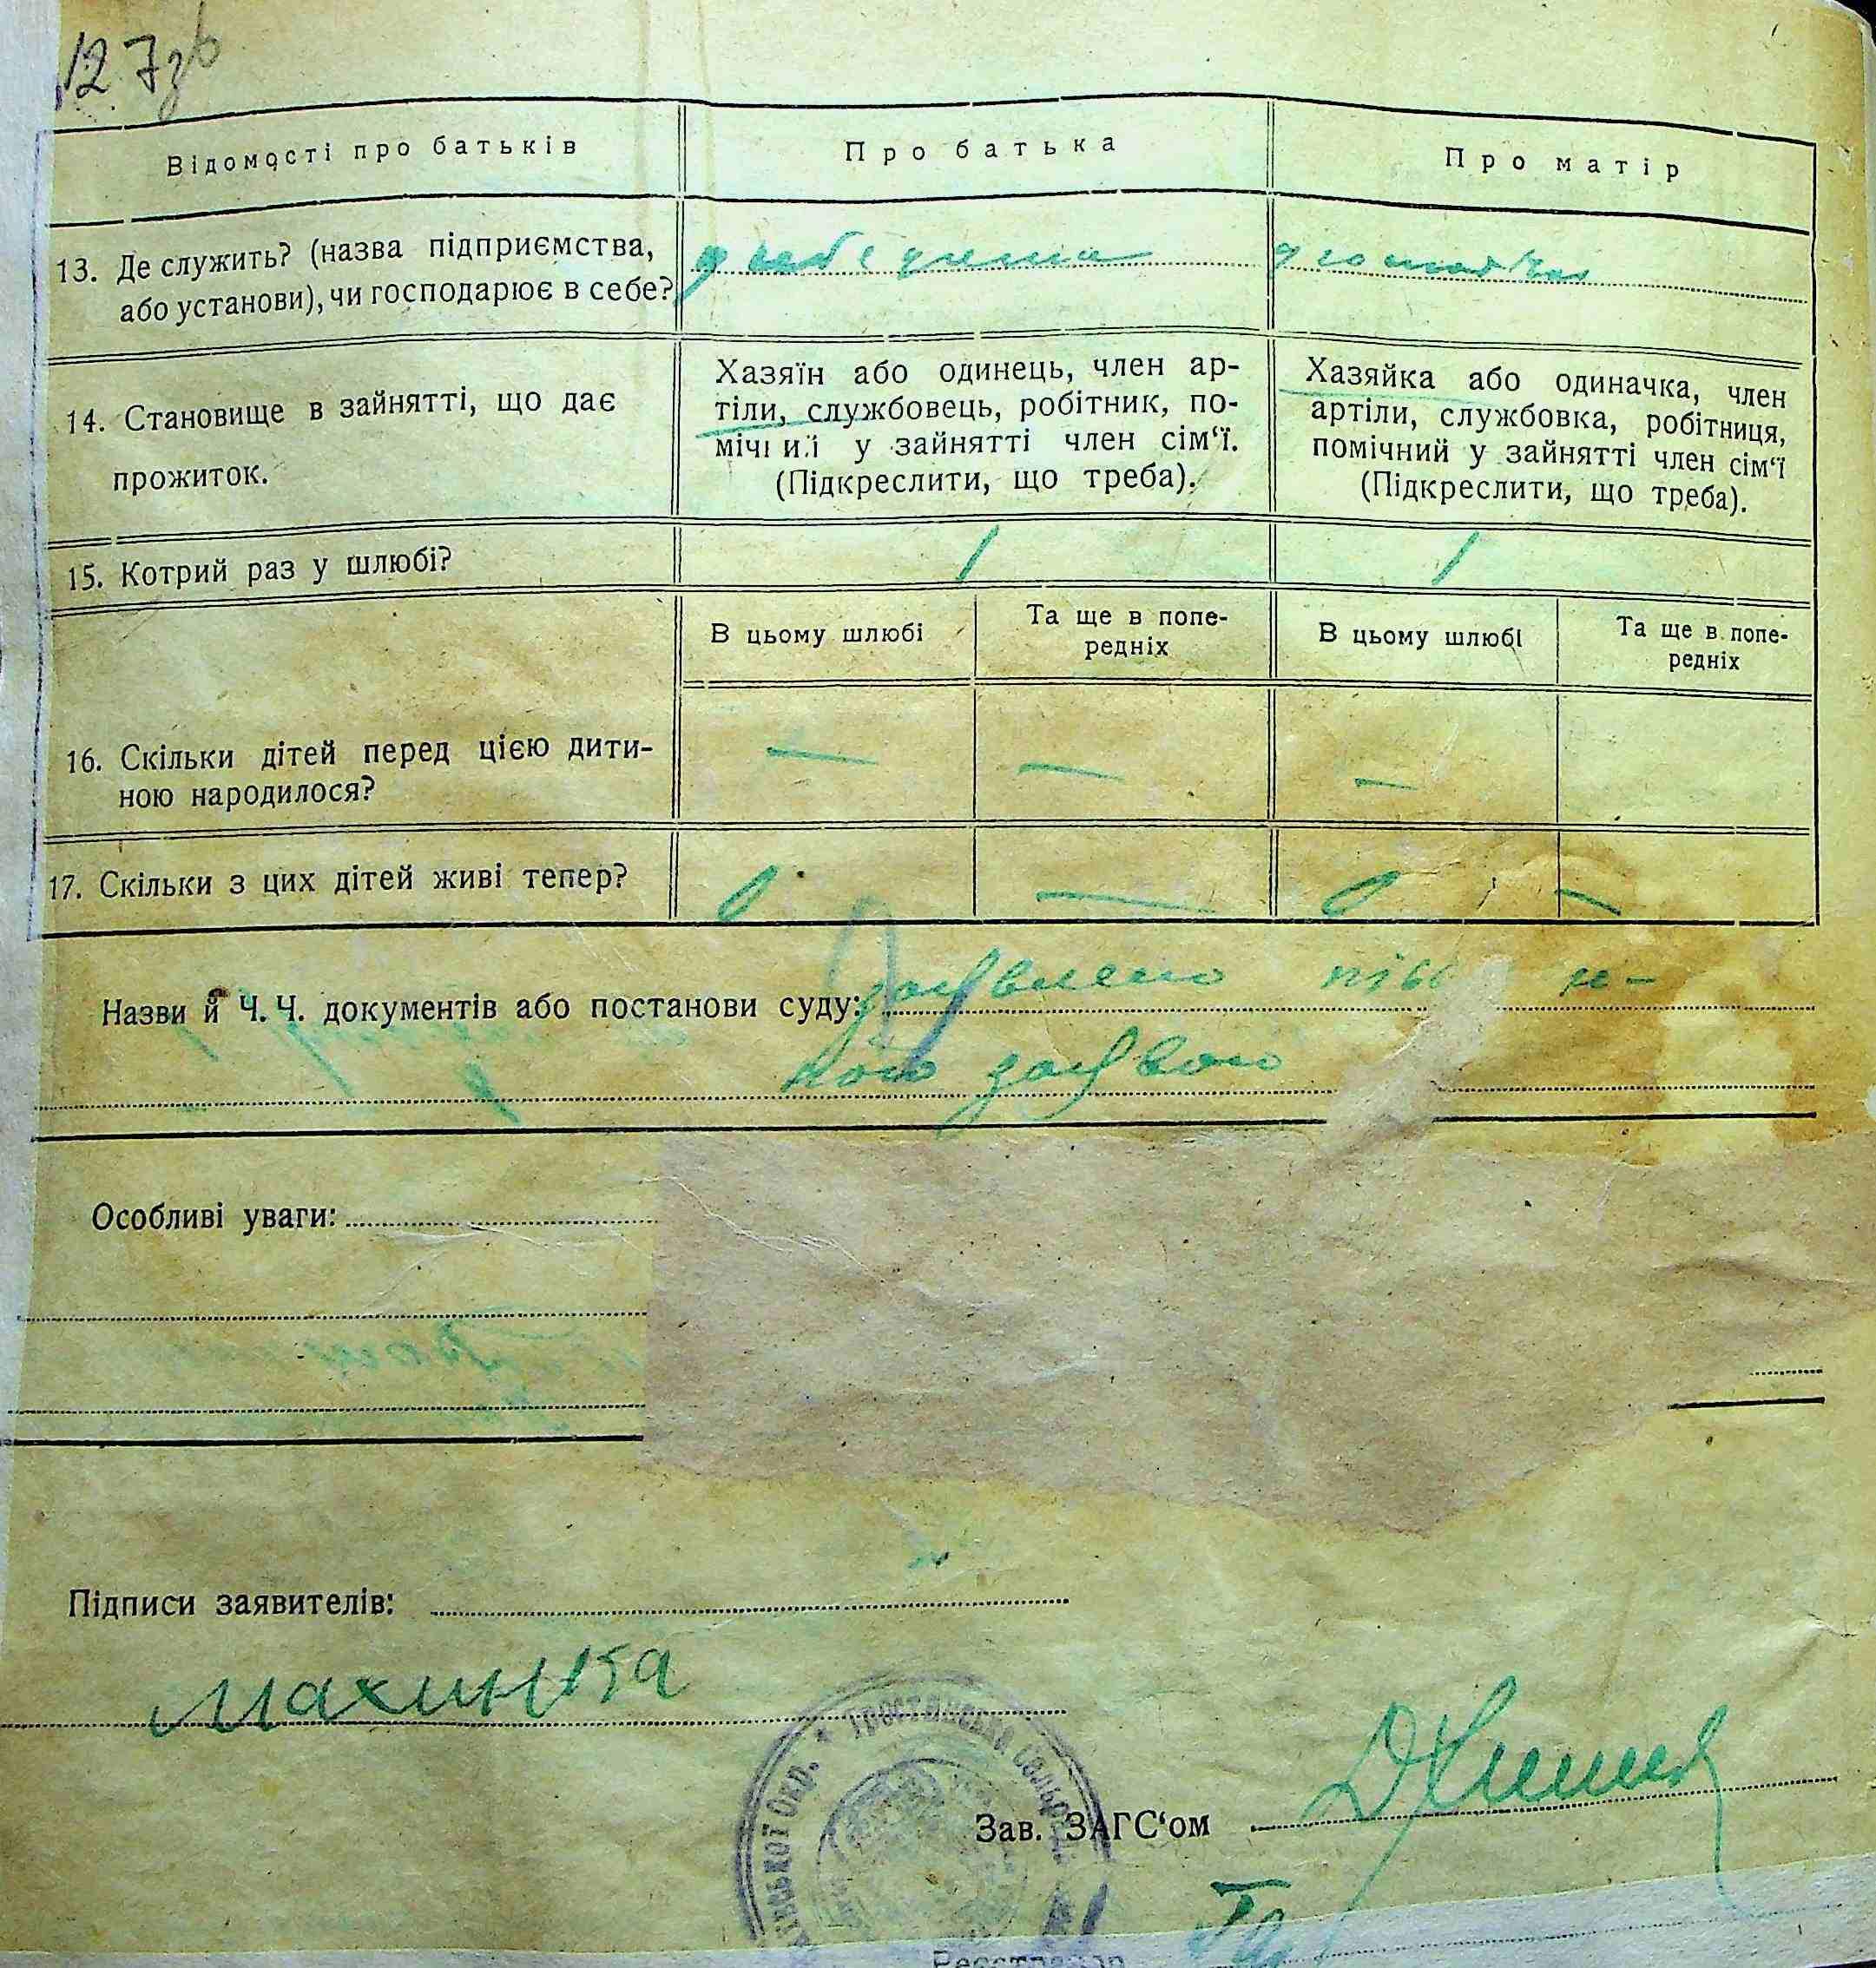 127зв
Відомості про батьків
Про батька
Про матір
13. Де служить? (назва підприємства,
або установи), чи господарює в себе?
14. Становище в зайнятті, що дає
прожиток.
Хазяїн або одинець, член ар-
тіли, службовець, робітник, по-
мічний у зайнятті член сім‘ї.
(Підкреслити, що треба).
Хазяйка або одиначка, член
артіли, службовка, робітниця,
помічний у зайнятті член сім‘ї
(Підкреслити, що треба).
15. Котрий раз у шлюбі?
1
1
В цьому шлюбі
Та ще в попе-
редніх
В цьому шлюбі
Та ще в попе-
редніх
16. Скільки дітей перед цією дити-
ною народилося?
— — —
17. Скільки з цих дітей живі тепер?
0 — 0 —
Назви й Ч. Ч. документів або постанови суду: заявлено
заявою
Особливі уваги:
Підписи заявителів:
Махинка
Зав. ЗАГС‘ом
Реєстратор